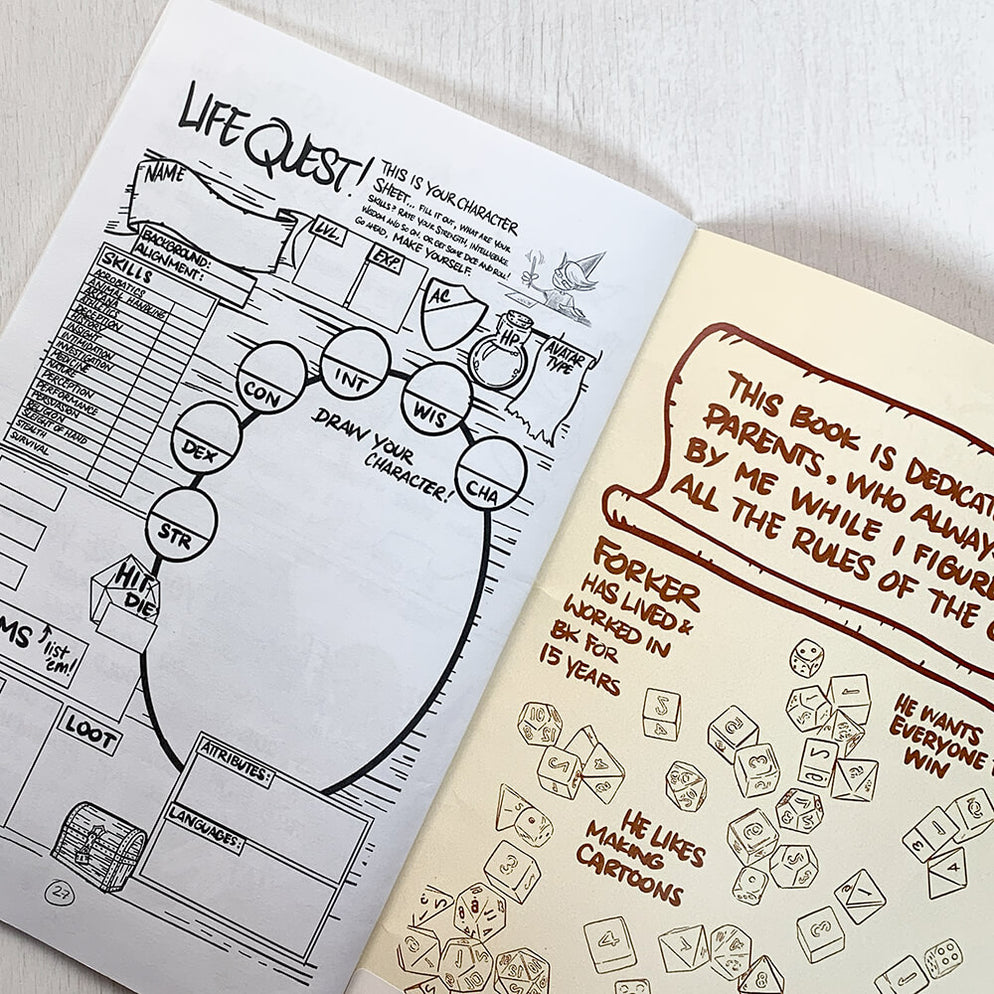 LIFE QUEST!
THIS IS YOUR CHARACTER
SHEET... FILL IT OUT, WHAT ARE YOUR
SKILLS? RATE YOUR STRENGTH, INTELLIGENCE
WISDOM AND SO ON, OR GET SOME DICE AND ROLL!
GO AHEAD, MAKE YOURSELF.
NAME
BACKGROUND:
ALIGNMENT:
LVL.
EXP.
AC
HP
AVATAR
TYPE
SKILLS
ACROBATICS
ANIMAL HANDLING
ARCANA
ATHLETICS
DECEPTION
HISTORY
INSIGHT
INTIMIDATION
INVESTIGATION
MEDICINE
NATURE
PERCEPTION
PERFORMANCE
PERSUASION
RELIGION
SLEIGHT OF HAND
STEALTH
SURVIVAL
STR
DEX
CON
INT
WIS
CHA
DRAW YOUR
CHARACTER!
HIT
DIE
MS
list
'em!
LOOT
ATTRIBUTES:
LANGUAGES:
27
THIS BOOK IS DEDICAT
PARENTS. WHO ALWAY
BY ME WHILE I FIGURE
ALL THE RULES OF THE
FORKER
HAS LIVED &
WORKED IN
BK FOR
15 YEARS
HE WANTS
EVERYONE T
WIN
HE LIKES
MAKING
CARTOONS